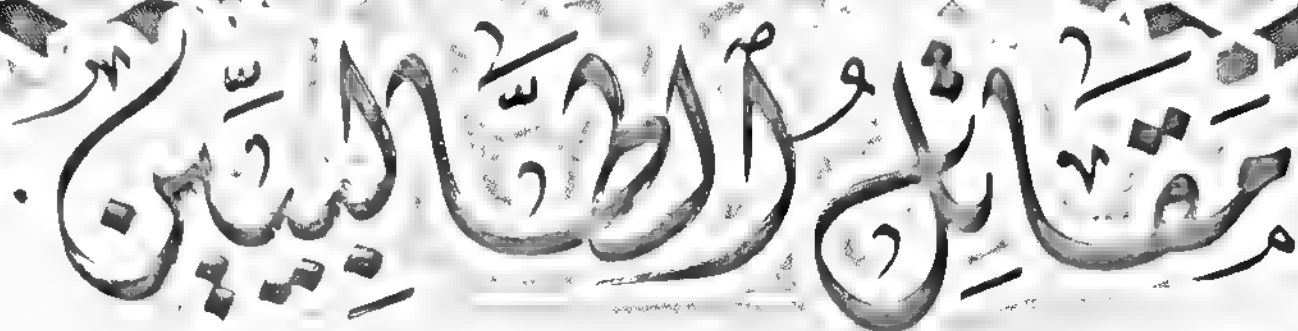 مَقَاتِلُ ٱلطَّالِبِيِّينَ